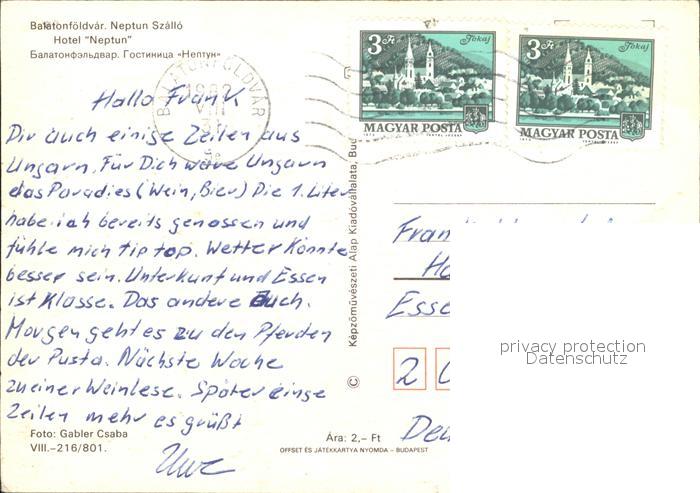 Balatonföldvár. Neptun Szálló
Hotel "Neptun"
Балатонфэльдвар. Гостиница «Нептун»
BALATONFÖLDVÁR
3 Ft
Tokaj
MAGYAR POSTA
3 Ft
Tokaj
MAGYAR POSTA
Hallo Frank
Dir auch einige Zeilen aus
Ungarn. Für Dich wäre Ungarn
das Paradies (Wein, Bier) Die 1. Liter
habe ich bereits genossen und
fühle mich tip top. Wetter könnte
besser sein. Unterkunft und Essen
ist Klasse. Das andere auch.
Morgen geht es zu den Pferden
der Pusta. Nächste Woche
zu einer Weinlese. Später einge
Zeilen mehr es grüßt
Uwe
Foto: Gabler Csaba
VIII.–216/801.
© Képzőművészeti Alap Kiadóvállalata, Bud
Ára: 2,– Ft
OFFSET ÉS JÁTÉKKARTYA NYOMDA – BUDAPEST
Fran
Ha
Esse
2
Deu
privacy protection
Datenschutz